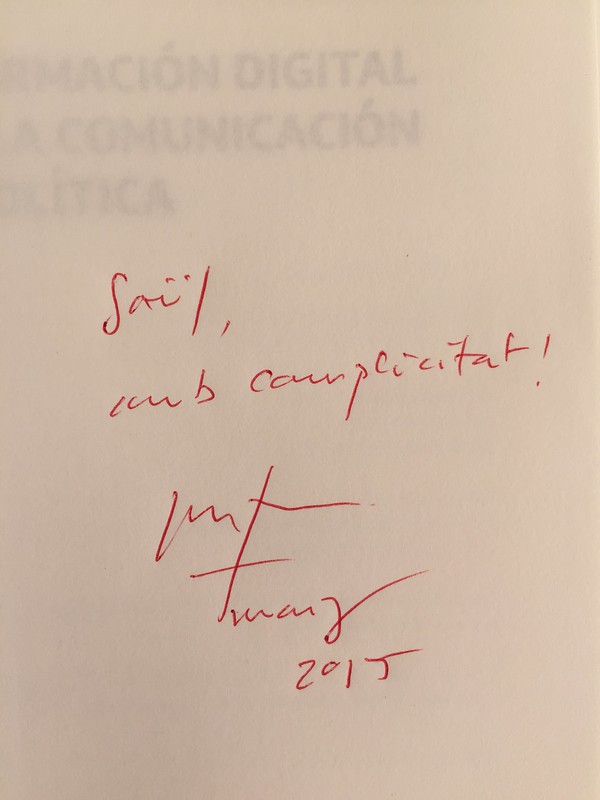 RMACIÓN DIGITAL
LA COMUNICACIÓN
OLÍTICA
Saül,
amb complicitat!
març
2015